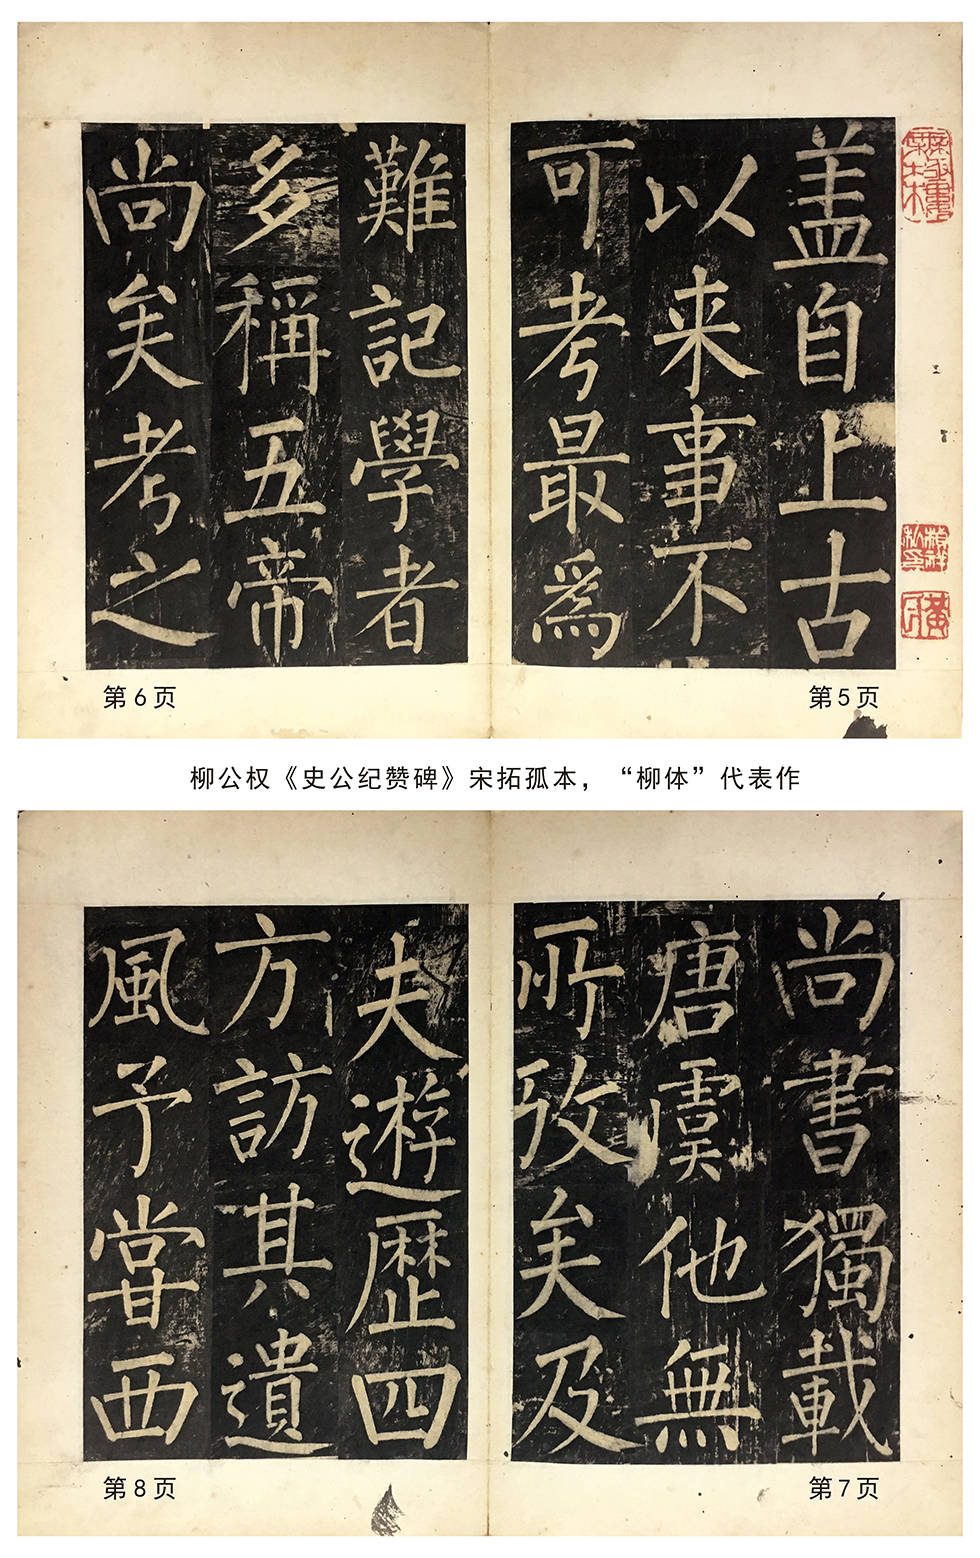 盖自上古
以来事不
可考最爲
第5页
難記學者
多稱五帝
尚矣考之
第6页
柳公权《史公纪赞碑》宋拓孤本，“柳体”代表作
尚書獨載
唐虞他無
所攷矣及
第7页
夫遊歷四
方訪其遺
風予甞西
第8页